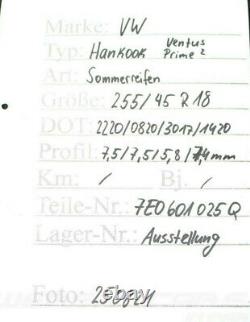 Marke: VW
Typ: Hankook Ventus Prime 2
Art: Sommerreifen
Größe: 255/45 R18
DOT: 2220/0820/3017/1420
Profil: 7,5/7,5/5,8/7,4mm
Km: / Bj. /
Teile-Nr.: 7E0601025Q
Lager-Nr.: Ausstellung
Foto:
ebay